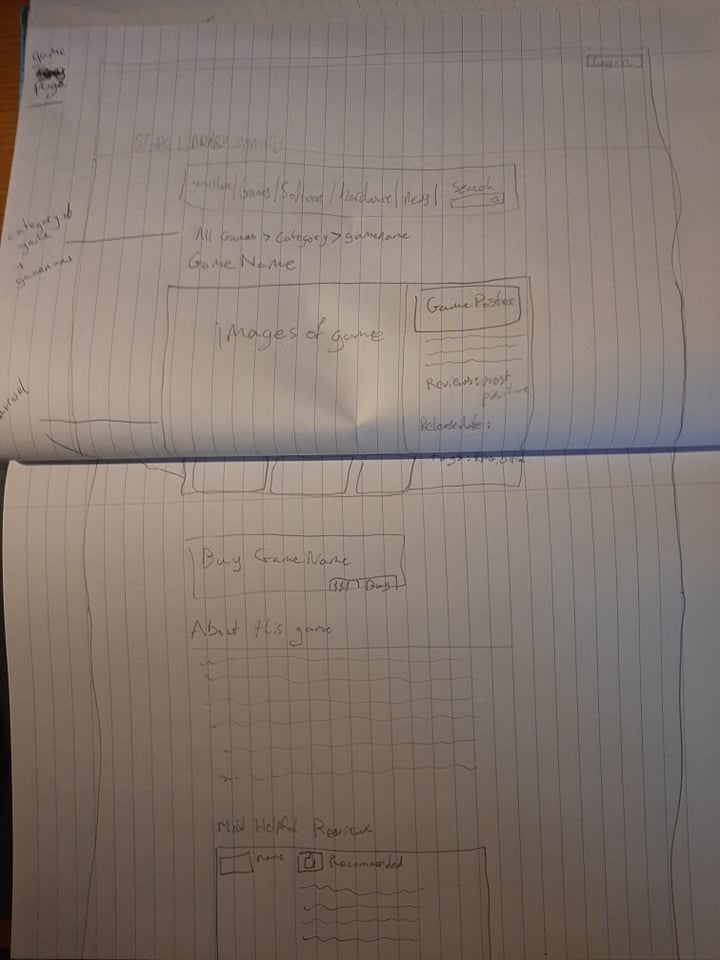 game
page
Login
STORE LIBRARY COMMUNITY
your store | Games | Software | Hardware | News |
Search
category of
game
+
gamename
All Games > Category > gamename
Game Name
Images of game
Game Poster
Reviews: most
positive
Release date:
Buy GameName
$$ | Buy
About this game
Most Helpful Reviews
name
Recommended